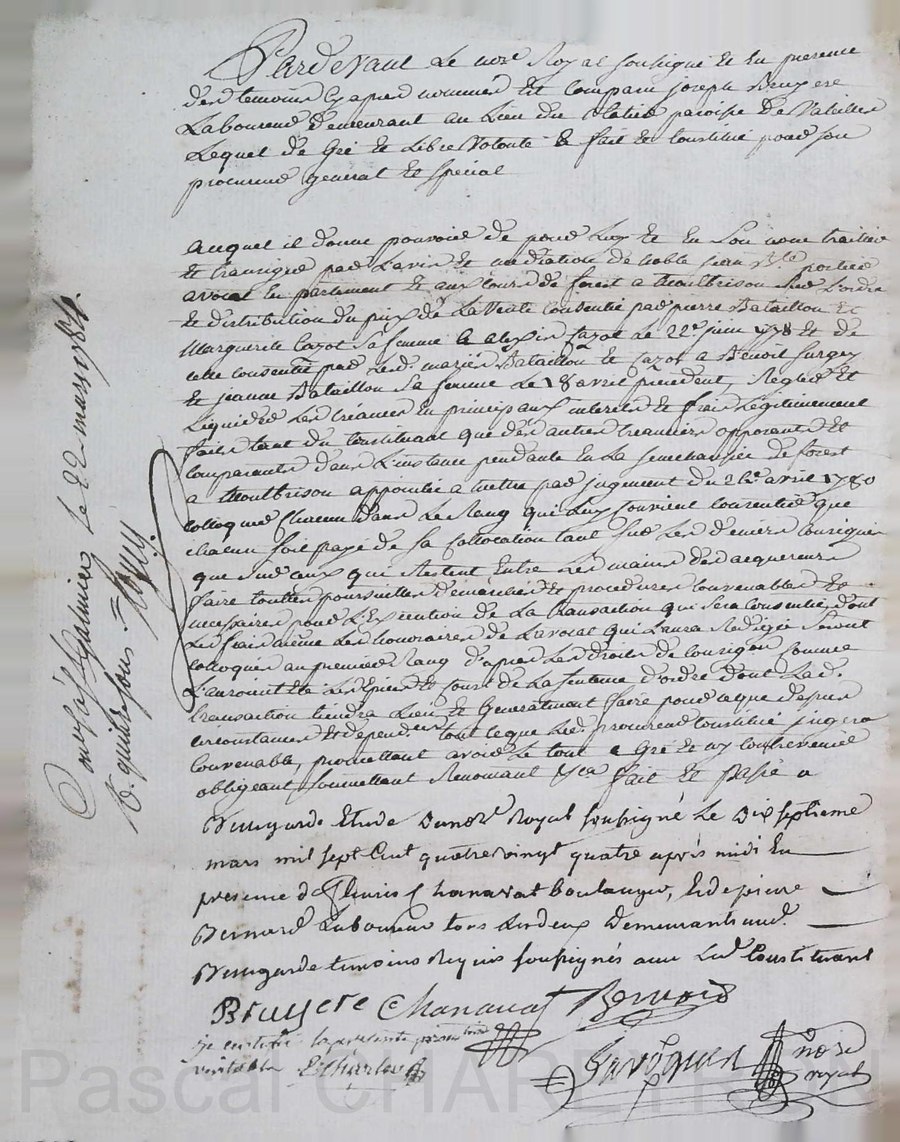 Pardevant Le no.re Royal soussigné Et En presence
des temoins cy apres nommés Est comparu joseph Bruyere
Laboureur demeurant au Lieu du paroisse De
Lequel de Gré Et Libre Volonté a fait Et Constitué pour son
procureur general Et special
auquel il donne pouvoir de pour Luy Et En Son nom traitter
Et transiger par Lavis Et mediation de noble jean B.te portier
avocat En parlement Et aux Cours de forest a Montbrison Sur L'ordre
Et distribution du prix de La Vente Consentie par pierre Bataillon Et
Marguerite Cazot Sa femme a Cazot Le 22.e juin 1778 Et de
celle Consentie par Lesd. mariés Bataillon Et Cazot a Benoit
Et jeanne Bataillon Sa femme Le 18 avril precedent, Regler Et
Liquider Les Creances En principaux interets Et frais Legitimement
faits tant du Constituant que des autres Creanciers opposants Et
Comparants dans L'instance pendante En La Senechaussée de forest
a Montbrison appointée a mettre par jugement du avril 1780
Colloquer chacun dans Le Rang qui Luy Convient Consentir que
chacun soit payé de sa Collocation tant Sur Les deniers Consignés
que Sur ceux qui Restent Entre Les mains des acquereurs
faire touttes poursuittes demandes Et procedures Convenables Et
necessaires pour L'Execution de La transaction qui Sera Consentie, dont
Les frais même Les honoraires de Lavocat qui Laura Redigée Seront
Colloqués au premier Rang d'apres Les droits de Consignon comme
L'auroient Eté Les Epices Et Cours de La Sentence d'ordre dont Lad.
transaction tiendra Lieu Et Generalement faire pour ce que dessus
circonstances Et dependances tout ce que Led. procureur Constitué jugera
Convenable, promettant avoir Le tout a Gré Et n'y Contrevenir
obligeant soumettant Renonçant &ca fait Et passé a
Bellegarde Etude Dunore. Royal soussigné Le Dix septieme
mars mil sept Cent quatre vingt quatre après midi En
presence de fleuris Chanavat Boulanger, Et de pierre
Bernard Laboureur tous Lesdeux Demeurants aud.
Bellegarde temoins Requis soussignés avec Led. Constituant
Bruyere Chanavat Bernard
je certifie la presente
veritable
no.re
royal
Controlé le 22 mars 1784.
R. quinze sous
Pascal CHARETRON